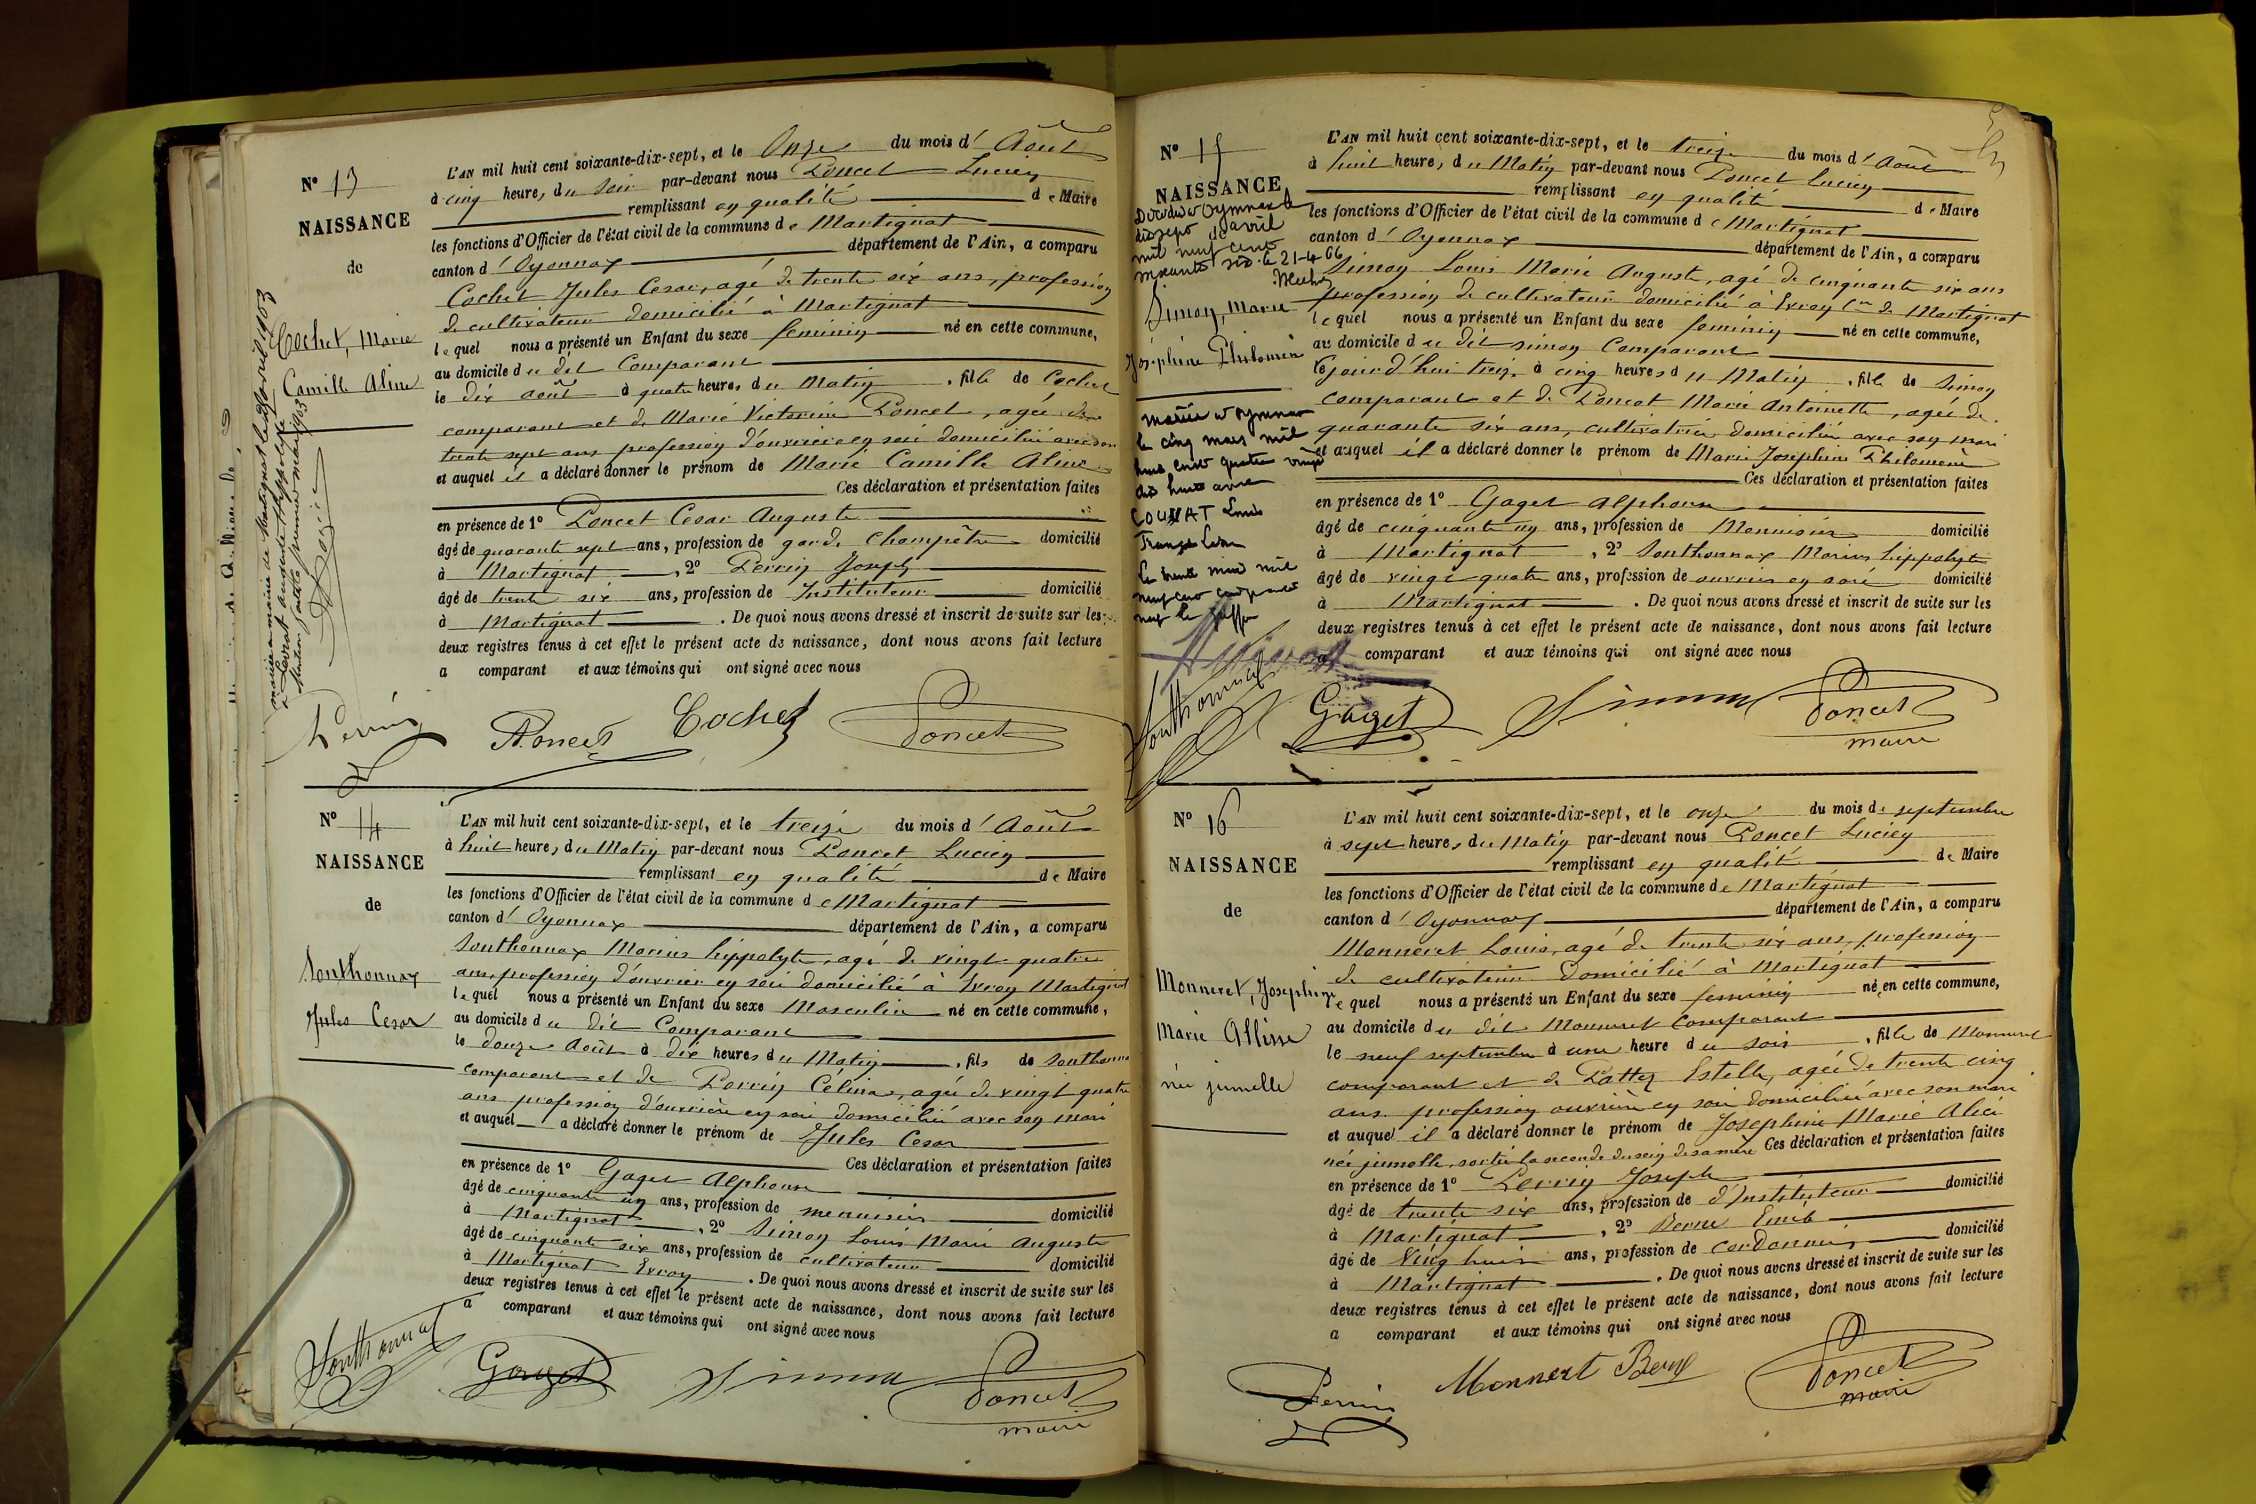 N° 13
NAISSANCE
de
Cochet, Marie
Camille Aline
mariée à la mairie de Martignat le avril 1903
à Levrat auguste Hippolyte
L'AN mil huit cent soixante-dix-sept, et le Onze du mois d' Août
à cinq heures du Soir par-devant nous Poncet Lucien
remplissant en qualité de Maire
les fonctions d'Officier de l'état civil de la commune de Martignat
canton d' Oyonnax département de l'Ain, a comparu
Cochet Jules Cesar, agé de trente six ans, profession
de cultivateur domicilié à Martignat
lequel nous a présenté un Enfant du sexe feminin né en cette commune,
au domicile du dit Comparant
le dix août à quatre heures du Matin, fille de Cochet
comparant et de Marie Victorine Poncet, agée de
trente sept ans profession d'ouvrière en soie domiciliée avec son
et auquel il a déclaré donner le prénom de Marie Camille Aline
Ces déclaration et présentation faites
en présence de 1° Poncet Cesar Auguste
âgé de quarante sept ans, profession de garde champêtre domicilié
à Martignat, 2° Perrin Joseph
âgé de trente six ans, profession de Instituteur domicilié
à Martignat. De quoi nous avons dressé et inscrit de suite sur les
deux registres tenus à cet effet le présent acte de naissance, dont nous avons fait lecture
a comparant et aux témoins qui ont signé avec nous
Perrin Poncet Cochet Poncet
N° 14
NAISSANCE
de
Sonthonnax
Jules Cesar
L'AN mil huit cent soixante-dix-sept, et le treize du mois d' Août
à huit heures du Matin par-devant nous Poncet Lucien
remplissant en qualité de Maire
les fonctions d'Officier de l'état civil de la commune de Martignat
canton d' Oyonnax département de l'Ain, a comparu
Sonthonnax Marius hippolyte, agé de vingt quatre
ans, profession d'ouvrier en soie domicilié à Evron Martignat
lequel nous a présenté un Enfant du sexe Masculin né en cette commune,
au domicile du dit Comparant
le douze Août à dix heures du Matin, fils de Sonthonnax
comparant et de Perrin Célina, agée de vingt quatre
ans profession d'ouvrière en soie domiciliée avec son mari
et auquel a déclaré donner le prénom de Jules Cesar
Ces déclaration et présentation faites
en présence de 1° Gaget Alphonse
âgé de cinquante un ans, profession de menuisier domicilié
à Martignat, 2° Simon Louis Marie Auguste
âgé de cinquante six ans, profession de cultivateur domicilié
à Martignat Evron. De quoi nous avons dressé et inscrit de suite sur les
deux registres tenus à cet effet le présent acte de naissance, dont nous avons fait lecture
a comparant et aux témoins qui ont signé avec nous
Sonthonnax Gaget Simon Poncet
maire
N° 15
NAISSANCE
Décédée à Oyonnax le
dix sept avril
mil neuf cent
soixante six. le 21-4 66
Simon, Marie
Joséphine Philomène
Mariée à Oyonnax
le cinq mars mil
huit cent quatre vingt
dix huit avec
COUNAT Louis
François
Le trente mai mil
neuf cent cinquante
neuf Le Greffier
L'AN mil huit cent soixante-dix-sept, et le treize du mois d' Août
à huit heures du Matin par-devant nous Poncet Lucien
remplissant en qualité de Maire
les fonctions d'Officier de l'état civil de la commune de Martignat
canton d' Oyonnax département de l'Ain, a comparu
Simon Louis Marie Auguste, agé de cinquante six ans
profession de cultivateur domicilié à Evron Cne de Martignat
lequel nous a présenté un Enfant du sexe féminin né en cette commune,
au domicile du dit simon Comparant
le jourd'hui treize à cinq heures du Matin, fille de Simon
comparant et de Poncet Marie Antoinette, agée de
quarante six ans, cultivatrice domiciliée avec son mari
et auquel il a déclaré donner le prénom de Marie Josephine Philomène
Ces déclaration et présentation faites
en présence de 1° Gaget Alphonse
âgé de cinquante un ans, profession de Menuisier domicilié
à Martignat, 2° Sonthonnax Marius hippolyte
âgé de vingt quatre ans, profession de ouvrier en soie domicilié
à Martignat. De quoi nous avons dressé et inscrit de suite sur les
deux registres tenus à cet effet le présent acte de naissance, dont nous avons fait lecture
a comparant et aux témoins qui ont signé avec nous
Sonthonnax Gaget Simon Poncet
maire
N° 16
NAISSANCE
de
Monneret, Josephine
Marie Allisse
née jumelle
L'AN mil huit cent soixante-dix-sept, et le onze du mois de septembre
à sept heures du Matin par-devant nous Poncet Lucien
remplissant en qualité de Maire
les fonctions d'Officier de l'état civil de la commune de Martignat
canton d' Oyonnax département de l'Ain, a comparu
Monneret Louis, agé de trente six ans, profession
de cultivateur domicilié à Martignat
lequel nous a présenté un Enfant du sexe feminin né en cette commune,
au domicile du dit Monneret Comparant
le neuf septembre à une heure du soir, fille de Monneret
comparant et de Pattez Estelle, agée de trente cinq
ans profession ouvrière en soie domiciliée avec son mari
et auquel il a déclaré donner le prénom de Josephine Marie Alice
née jumelle, sortie la seconde du sein de sa mère Ces déclaration et présentation faites
en présence de 1° Perrin Joseph
âgé de trente six ans, profession de d'Instituteur domicilié
à Martignat, 2° Berne Emile
âgé de Vingt huit ans, profession de cordonnier domicilié
à Martignat. De quoi nous avons dressé et inscrit de suite sur les
deux registres tenus à cet effet le présent acte de naissance, dont nous avons fait lecture
a comparant et aux témoins qui ont signé avec nous
Perrin Monneret Berne Poncet
maire